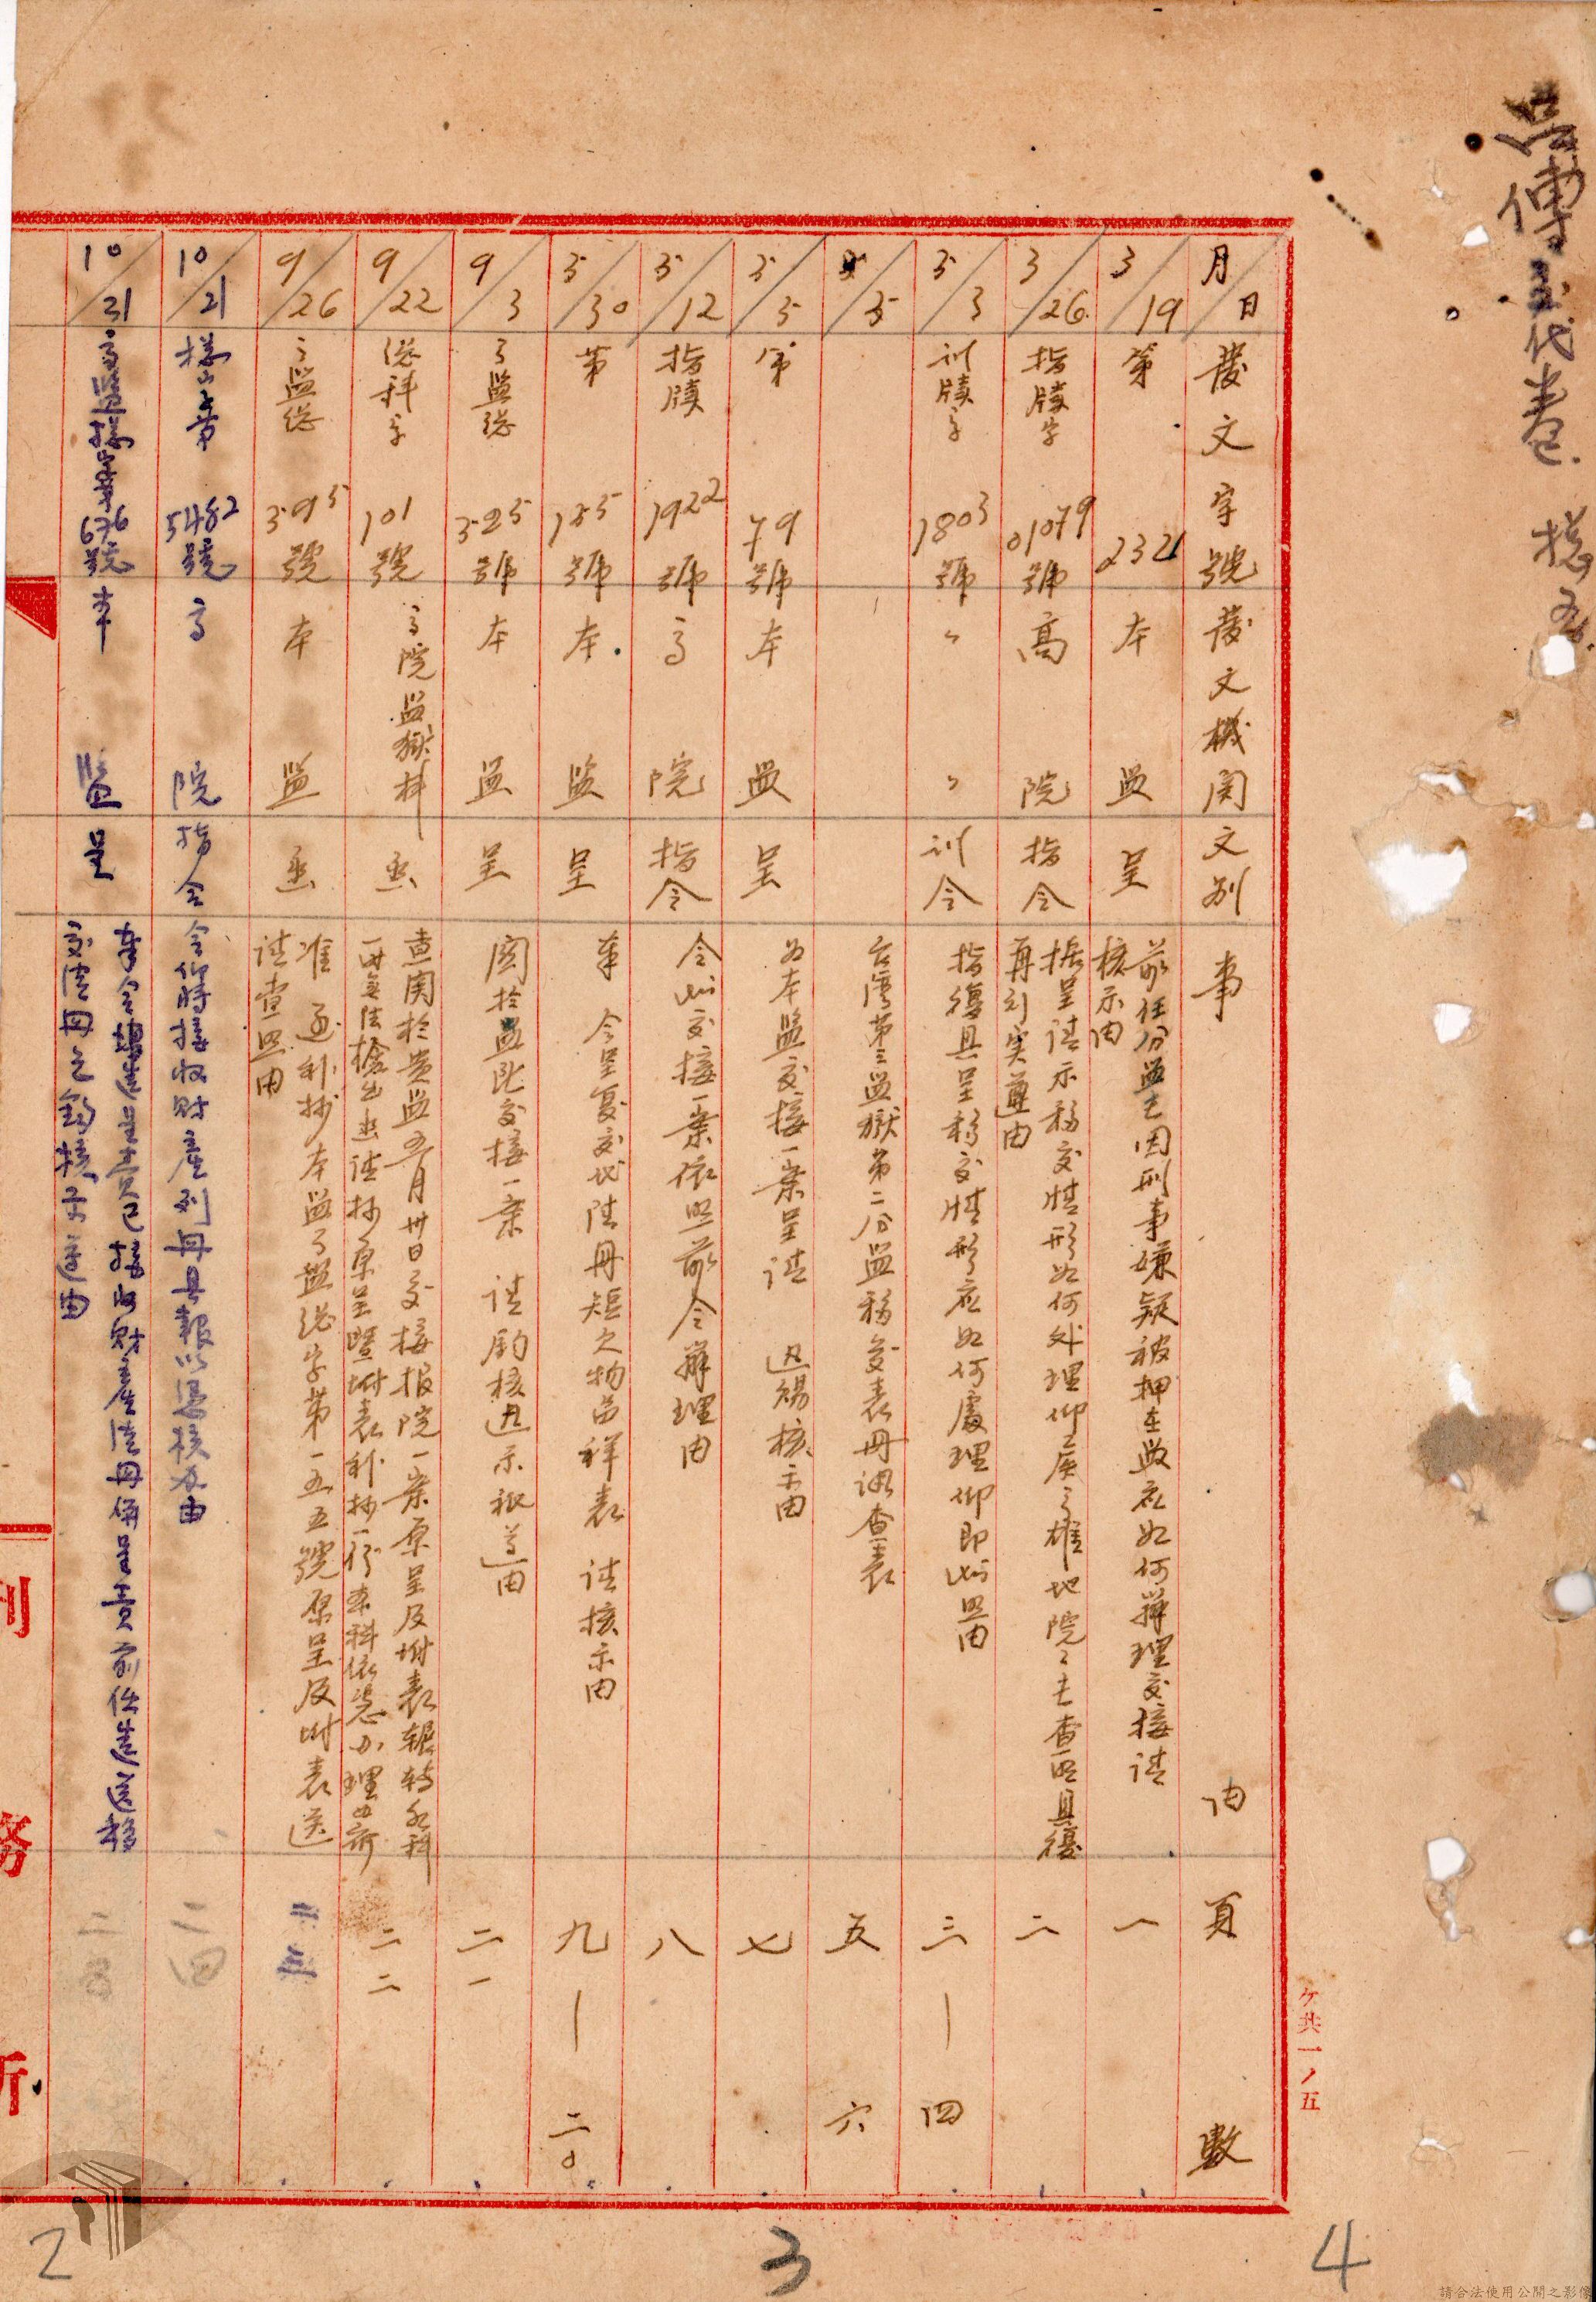 呂傳玉代卷 移交
月/日 發文字號 發文機関 文別 事由 頁數
3/19 第 2321 本監 呈 前任分監長因刑事嫌疑被押在監應如何辦理交接請
核示由 一
3/26 指牘字 01079號 高院 指令 據呈請示移交情形如何処理仰候高雄地院院長查明具復
再行奚遵由 二
5/3 訓牘字 1803號 〃〃 訓令 指復具呈移交情形應如何處理仰即遵照由 三—四
5/5 台灣第三監獄第二分監移交表冊調查表 五 六
5/5 第 79號 本監 呈 為本監交接一案呈請 迅賜核示由 七
5/12 指牘 1922號 高院 指令 令為交接一案依照前令辦理由 八
5/30 第 155號 本監 呈 奉 令呈复交代陸冊短欠物品祥表 請核示由 九—二〇
9/3 高監總 325號 本監 呈 関於監長交接一案 請鈞核迅示祗遵由 二一
9/22 總科字 101號 高院監獄科 函 查関於貴監五月卅日交接报院一案原呈及附表輾轉

本科
一時無法檢出函請抄原呈暨附表補抄一份本科依憑办理由 二二
9/26 高監總 395號 本監 函 准 函補抄本監高監總字第一五五號原呈及附表送
請查照由 二三
10/21 第 5482號 高院 指令 令仰將接收財產列冊具報以憑核办由 二四
10/31 676號 本監 呈 奉令已接收財產清冊
交清冊 核示遵由
ケ共一ノ五
刑務所
2 3 4
請合法使用公開之影像